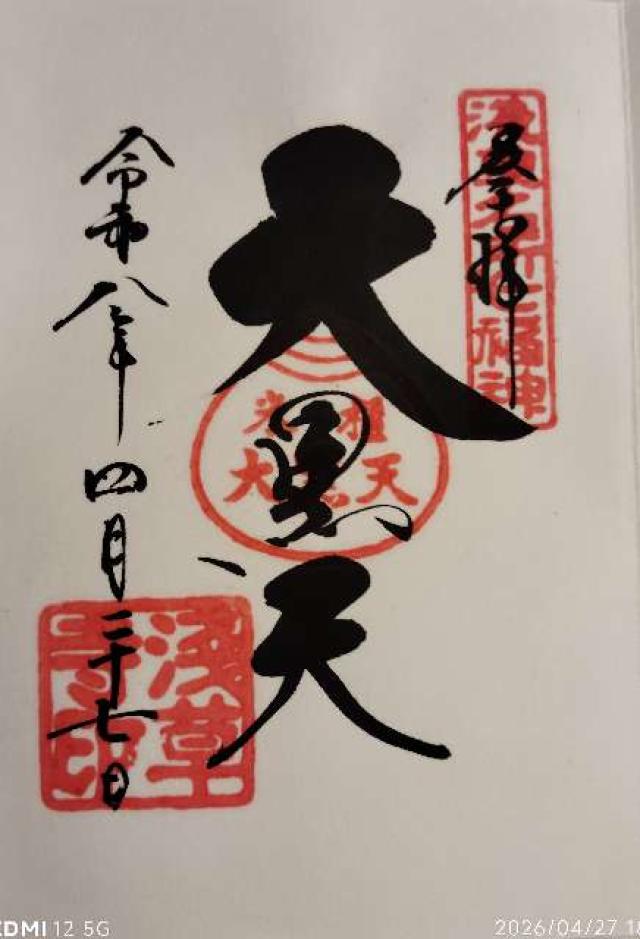 奉拝
浅草名所七福神
大黒天
米櫃
大黒天
令和八年四月二十七日
浅草
寺印
REDMI 12 5G
2026/04/27 1